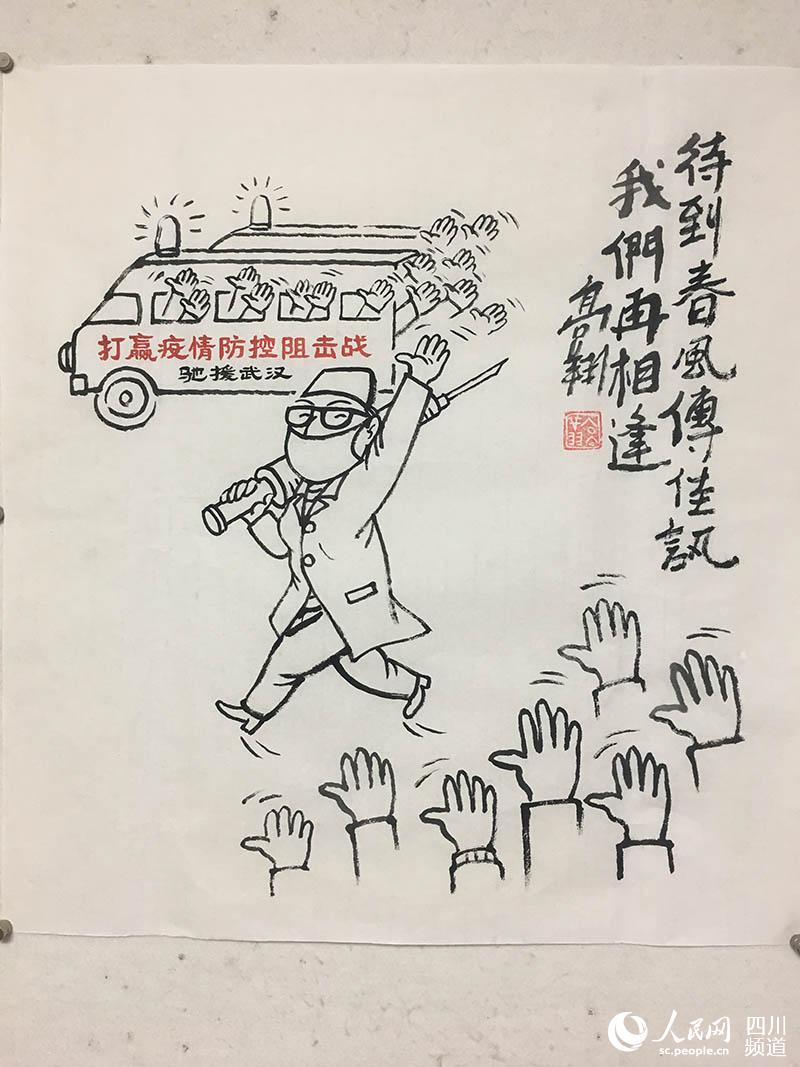 待到春風傳佳訊
我們再相逢
高翔
打赢疫情防控阻击战
驰援武汉
人民网
sc.people.cn
四川
频道